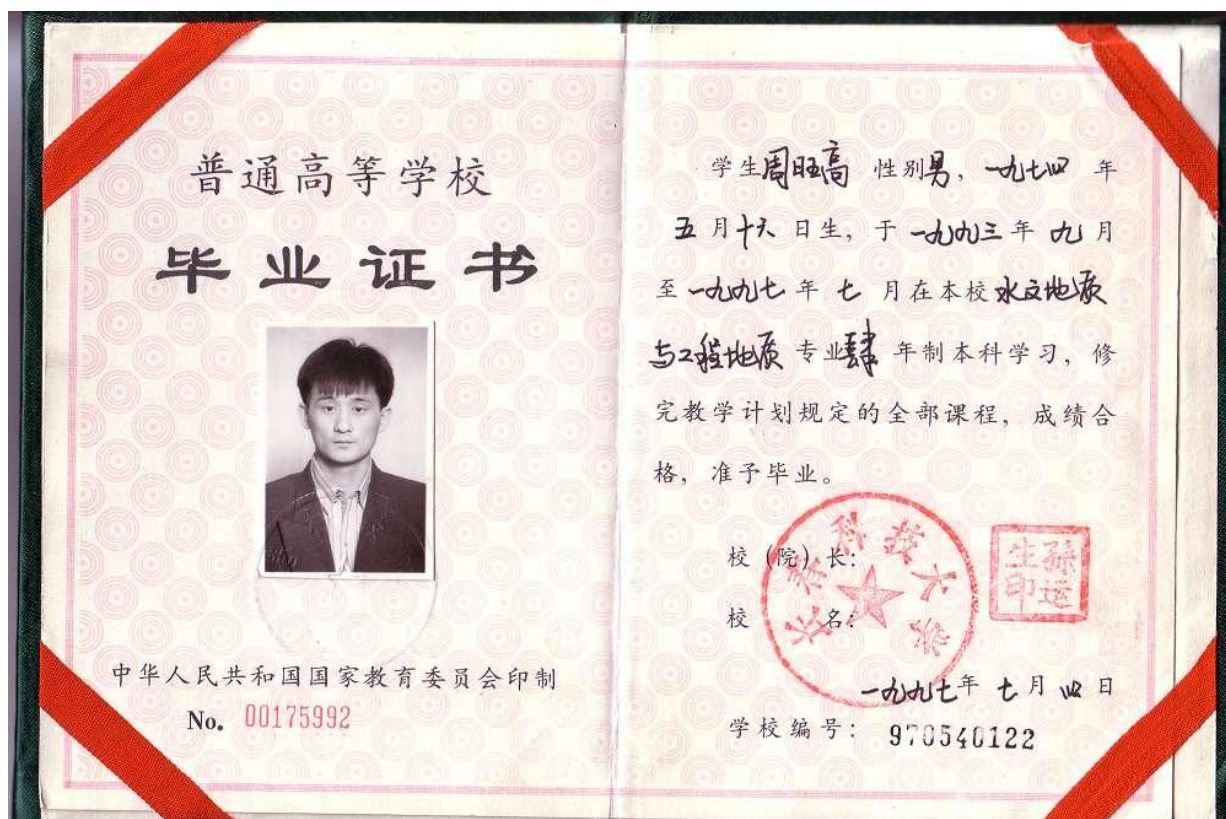 普通高等学校
毕业证书
中华人民共和国国家教育委员会印制
No. 00175992
学生周旺高 性别男，一九七四 年
五月十六日生，于一九九三年九月
至一九九七年七月在本校水文地质
与工程地质专业肆年制本科学习，修
完教学计划规定的全部课程，成绩合
格，准予毕业。
校（院）长：
孙运生印
校名：
长春科技大学
一九九七年七月四日
学校编号：970540122